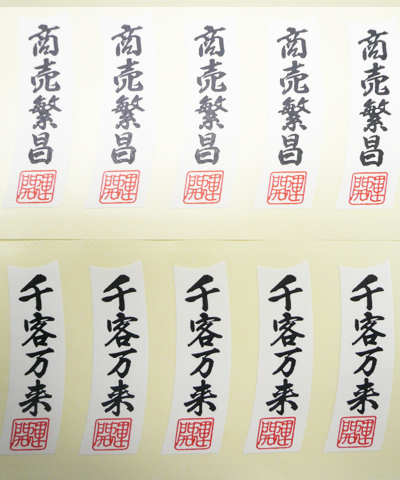 商売繁昌
開運
商売繁昌
開運
商売繁昌
開運
商売繁昌
開運
商売繁昌
開運
千客万来
開運
千客万来
開運
千客万来
開運
千客万来
開運
千客万来
開運